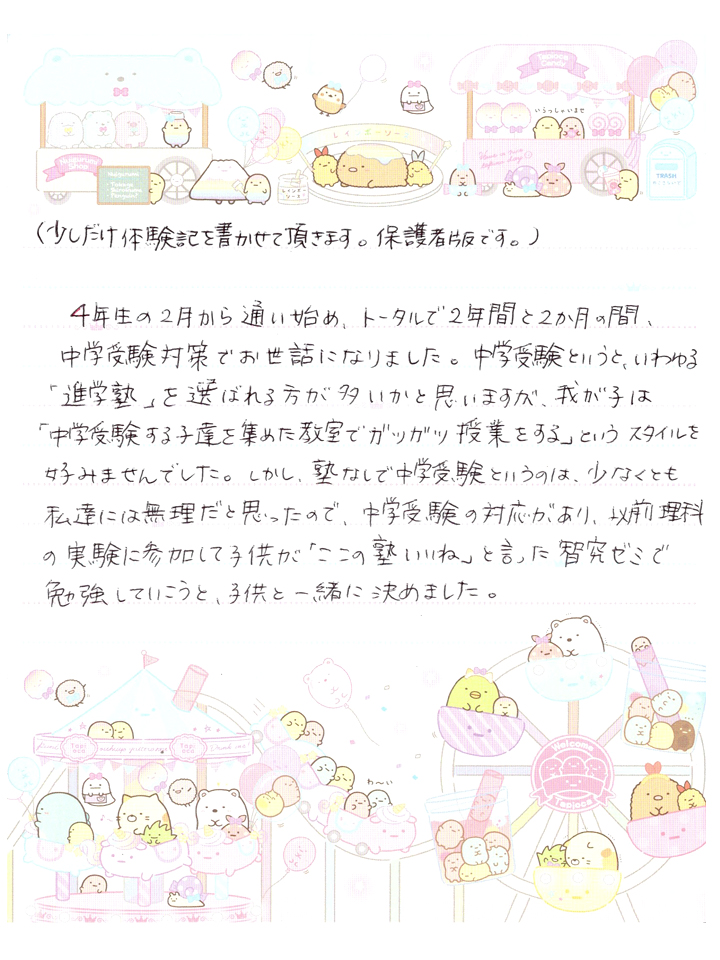 Tapioca
いらっしゃいませ
レインボーソーダ
Nuigurumi
Nuigurumi
・Tokage
TRASH
(少しだけ体験記を書かせて頂きます。保護者版です。)
4年生の2月から通い始め、トータルで2年間と2か月の間、
中学受験対策でお世話になりました。中学受験というと、いわゆる
「進学塾」を選ばれる方が多いかと思いますが、我が子は
「中学受験する子達を集めた教室でガツガツ授業をする」というスタイルを
好みませんでした。しかし、塾なしで中学受験というのは、少なくとも
私達には無理だと思ったので、中学受験の対応があり、以前理科
の実験に参加して子供が「ここの塾いいね」と言った智究ゼミで
勉強していこうと、子供と一緒に決めました。
わ〜い
Welcome
Tapioca